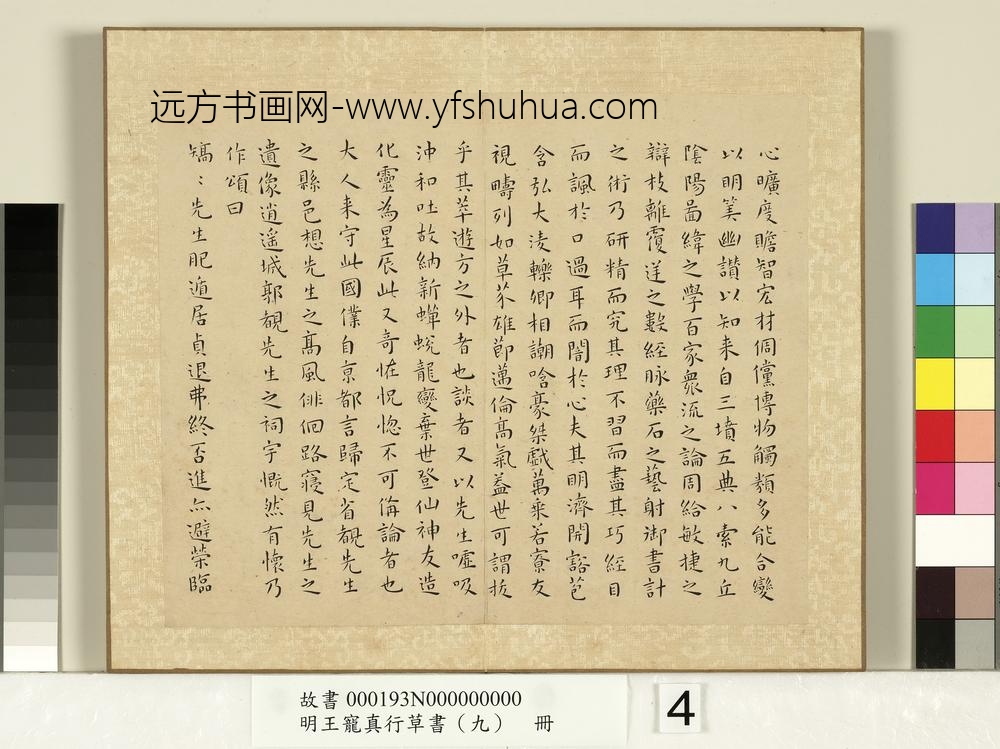 远方书画网-www.yfshuhua.com
心曠度贍智宏材倜儻博物觸類多能合變
以明筭幽讚以知来自三墳五典八索九丘
陰陽啚緯之學百家衆流之論周給敏捷之
辯枝離覆逆之數經脉藥石之藝射御書計
之術乃研精而究其理不習而盡其巧經目
而諷於口過耳而闇於心夫其明濟開豁苞
含弘大淩轢卿相謿哈豪桀戲萬乘若寮友
視疇列如草芥雄節邁倫髙氣葢世可謂拔
乎其萃遊方之外者也談者又以先生噓吸
沖和吐故納新蟬蛻龍變棄世登仙神友造
化靈為星辰此又奇恠怳惚不可俻論者也
大人来守此國僕自京都言歸定省覩先生
之縣邑想先生之髙風俳佪路寢見先生之
遺像逍遥城郭覩先生之祠宇慨然有懷乃
作頌曰
矯〻先生肥遁居貞退弗終否進亦避榮臨
故書 000193N000000000
明王寵真行草書（九） 冊
4